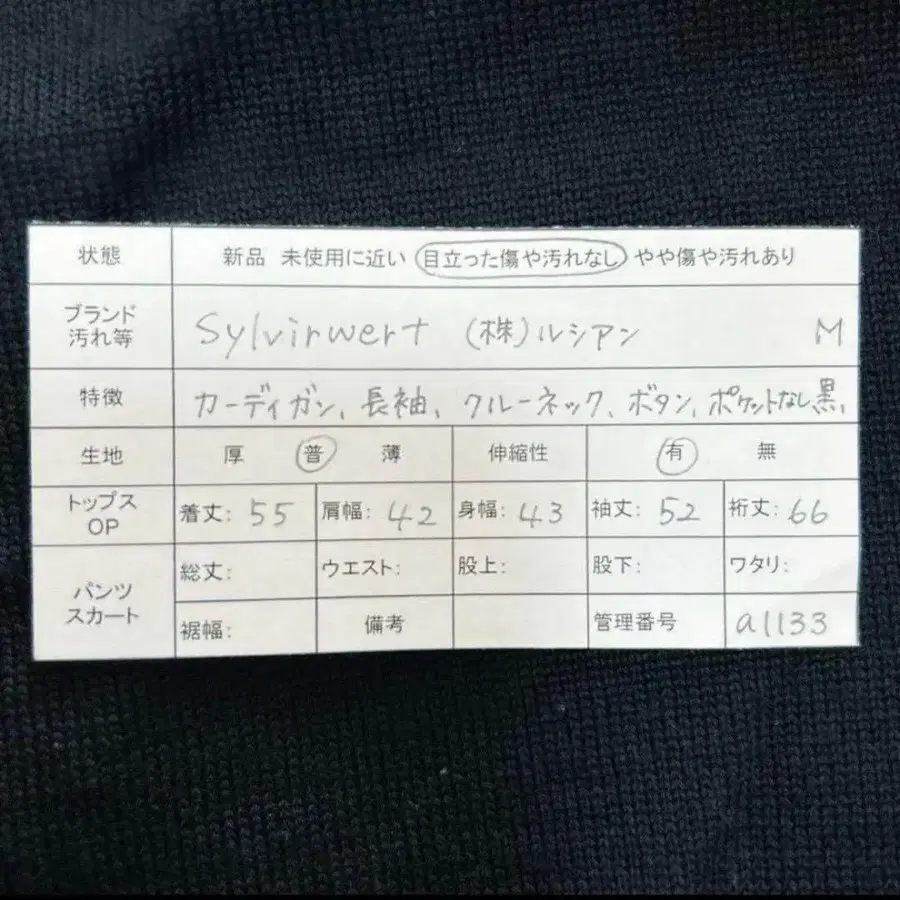 状態 新品 未使用に近い 目立った傷や汚れなし やや傷や汚れあり
ブランド
汚れ等
Sylvirwert (株)ルシアン M
特徴 カーディガン、長袖、クルーネック、ボタン、ポケットなし黒、
生地 厚 普 薄 伸縮性 有 無
トップス
OP
着丈: 55 肩幅: 42 身幅: 43 袖丈: 52 裄丈: 66
パンツ
スカート
総丈: ウエスト: 股上: 股下: ワタリ:
裾幅: 備考 管理番号 a1133